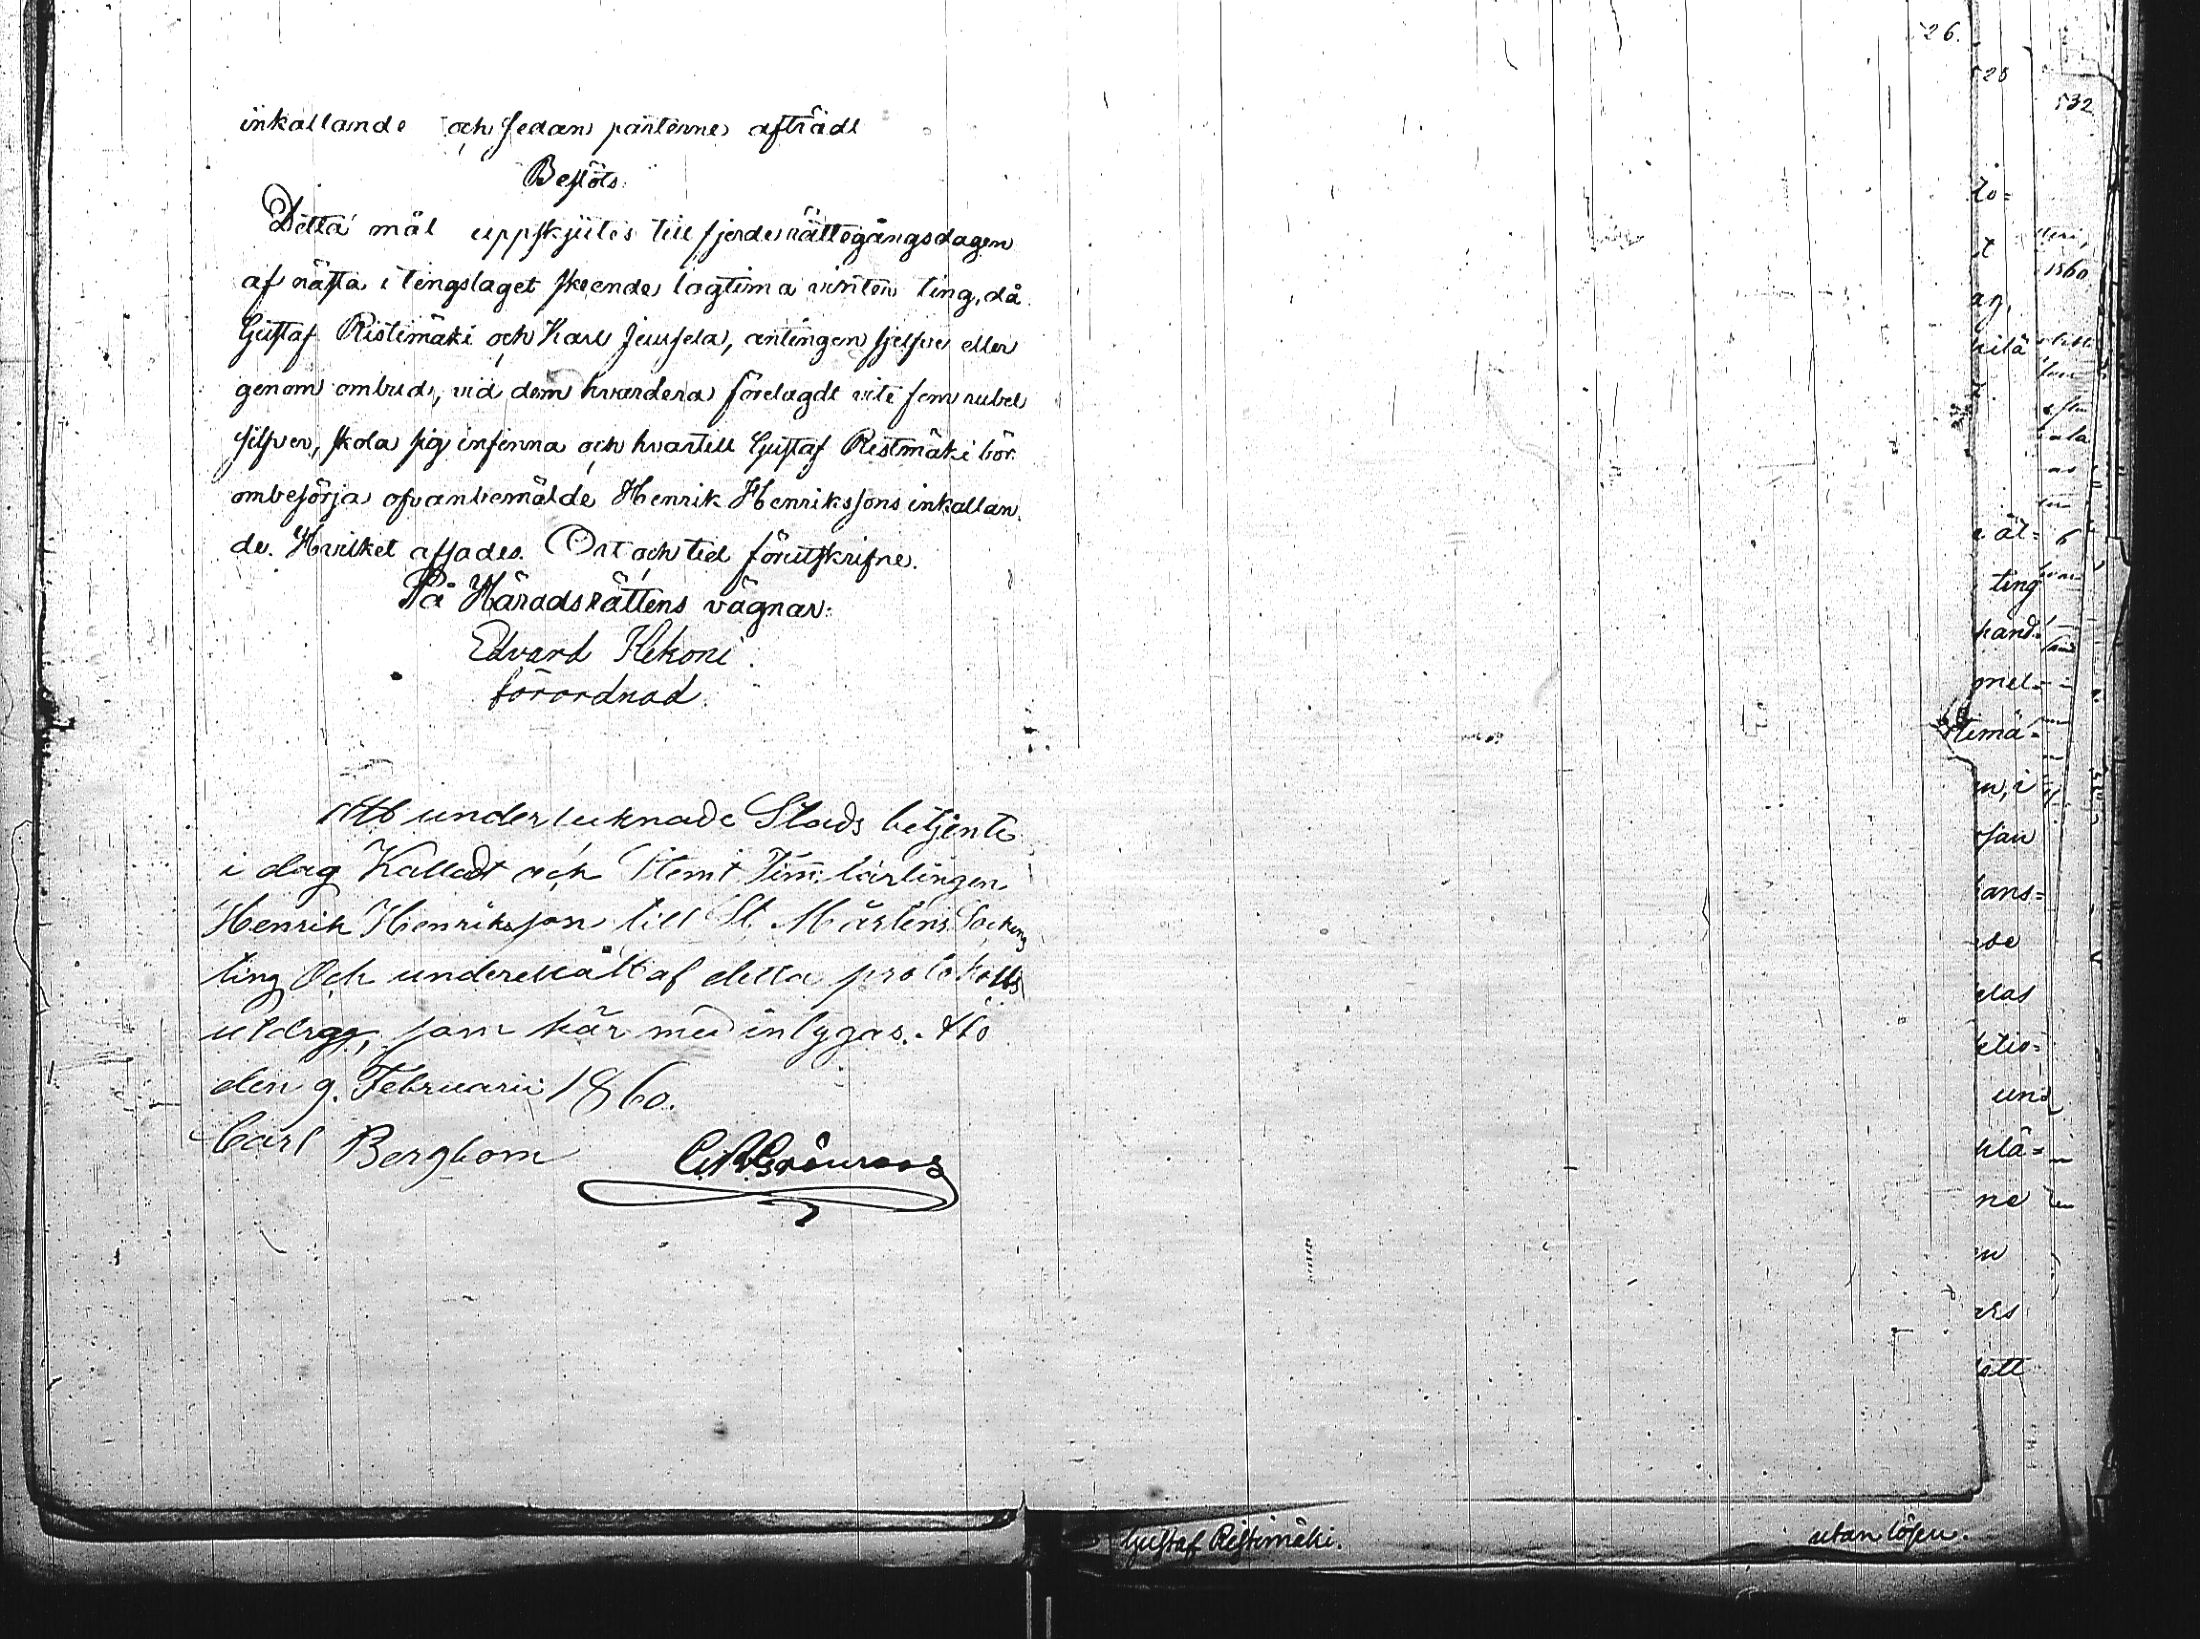 inkallande och sedan parterne afträdt
Beslöts:
Detta mål uppskjutes till fjerde rättegångsdagen
af nästa i tingslaget skeende lagtima vinter ting, då
Gustaf Ristimäki och Karl Juusela, antingen sjelfve eller
genom ombud, vid dem hvardera förelagdt vite fem rubel
silfver, skola sig infinna och hvartill Gustaf Ristimäki bör
ombesörja ofvanbemälde Henrik Henrikssons inkallan-
de. Hvilket afsades. Ort och tid förutskrifne.
På Häradsrättens vägnar:
Edvard Kekoni.
förordnad.
Att undertecknade Stads betjente
i dag Kalladt och Stemt Tim. lärlingen
Henrik Henriksson till St. Mårtens Sockens
ting Och underrätt af detta protokolls
utdrag, som här med intygas. Åbo
den 9. Februarii 1860.
Carl Bergbom C. A. Grönroos
26.
528
532
1860
ting
hand-
mel-
timä-
und
klä-
Gustaf Ristimäki.
utan lösen.